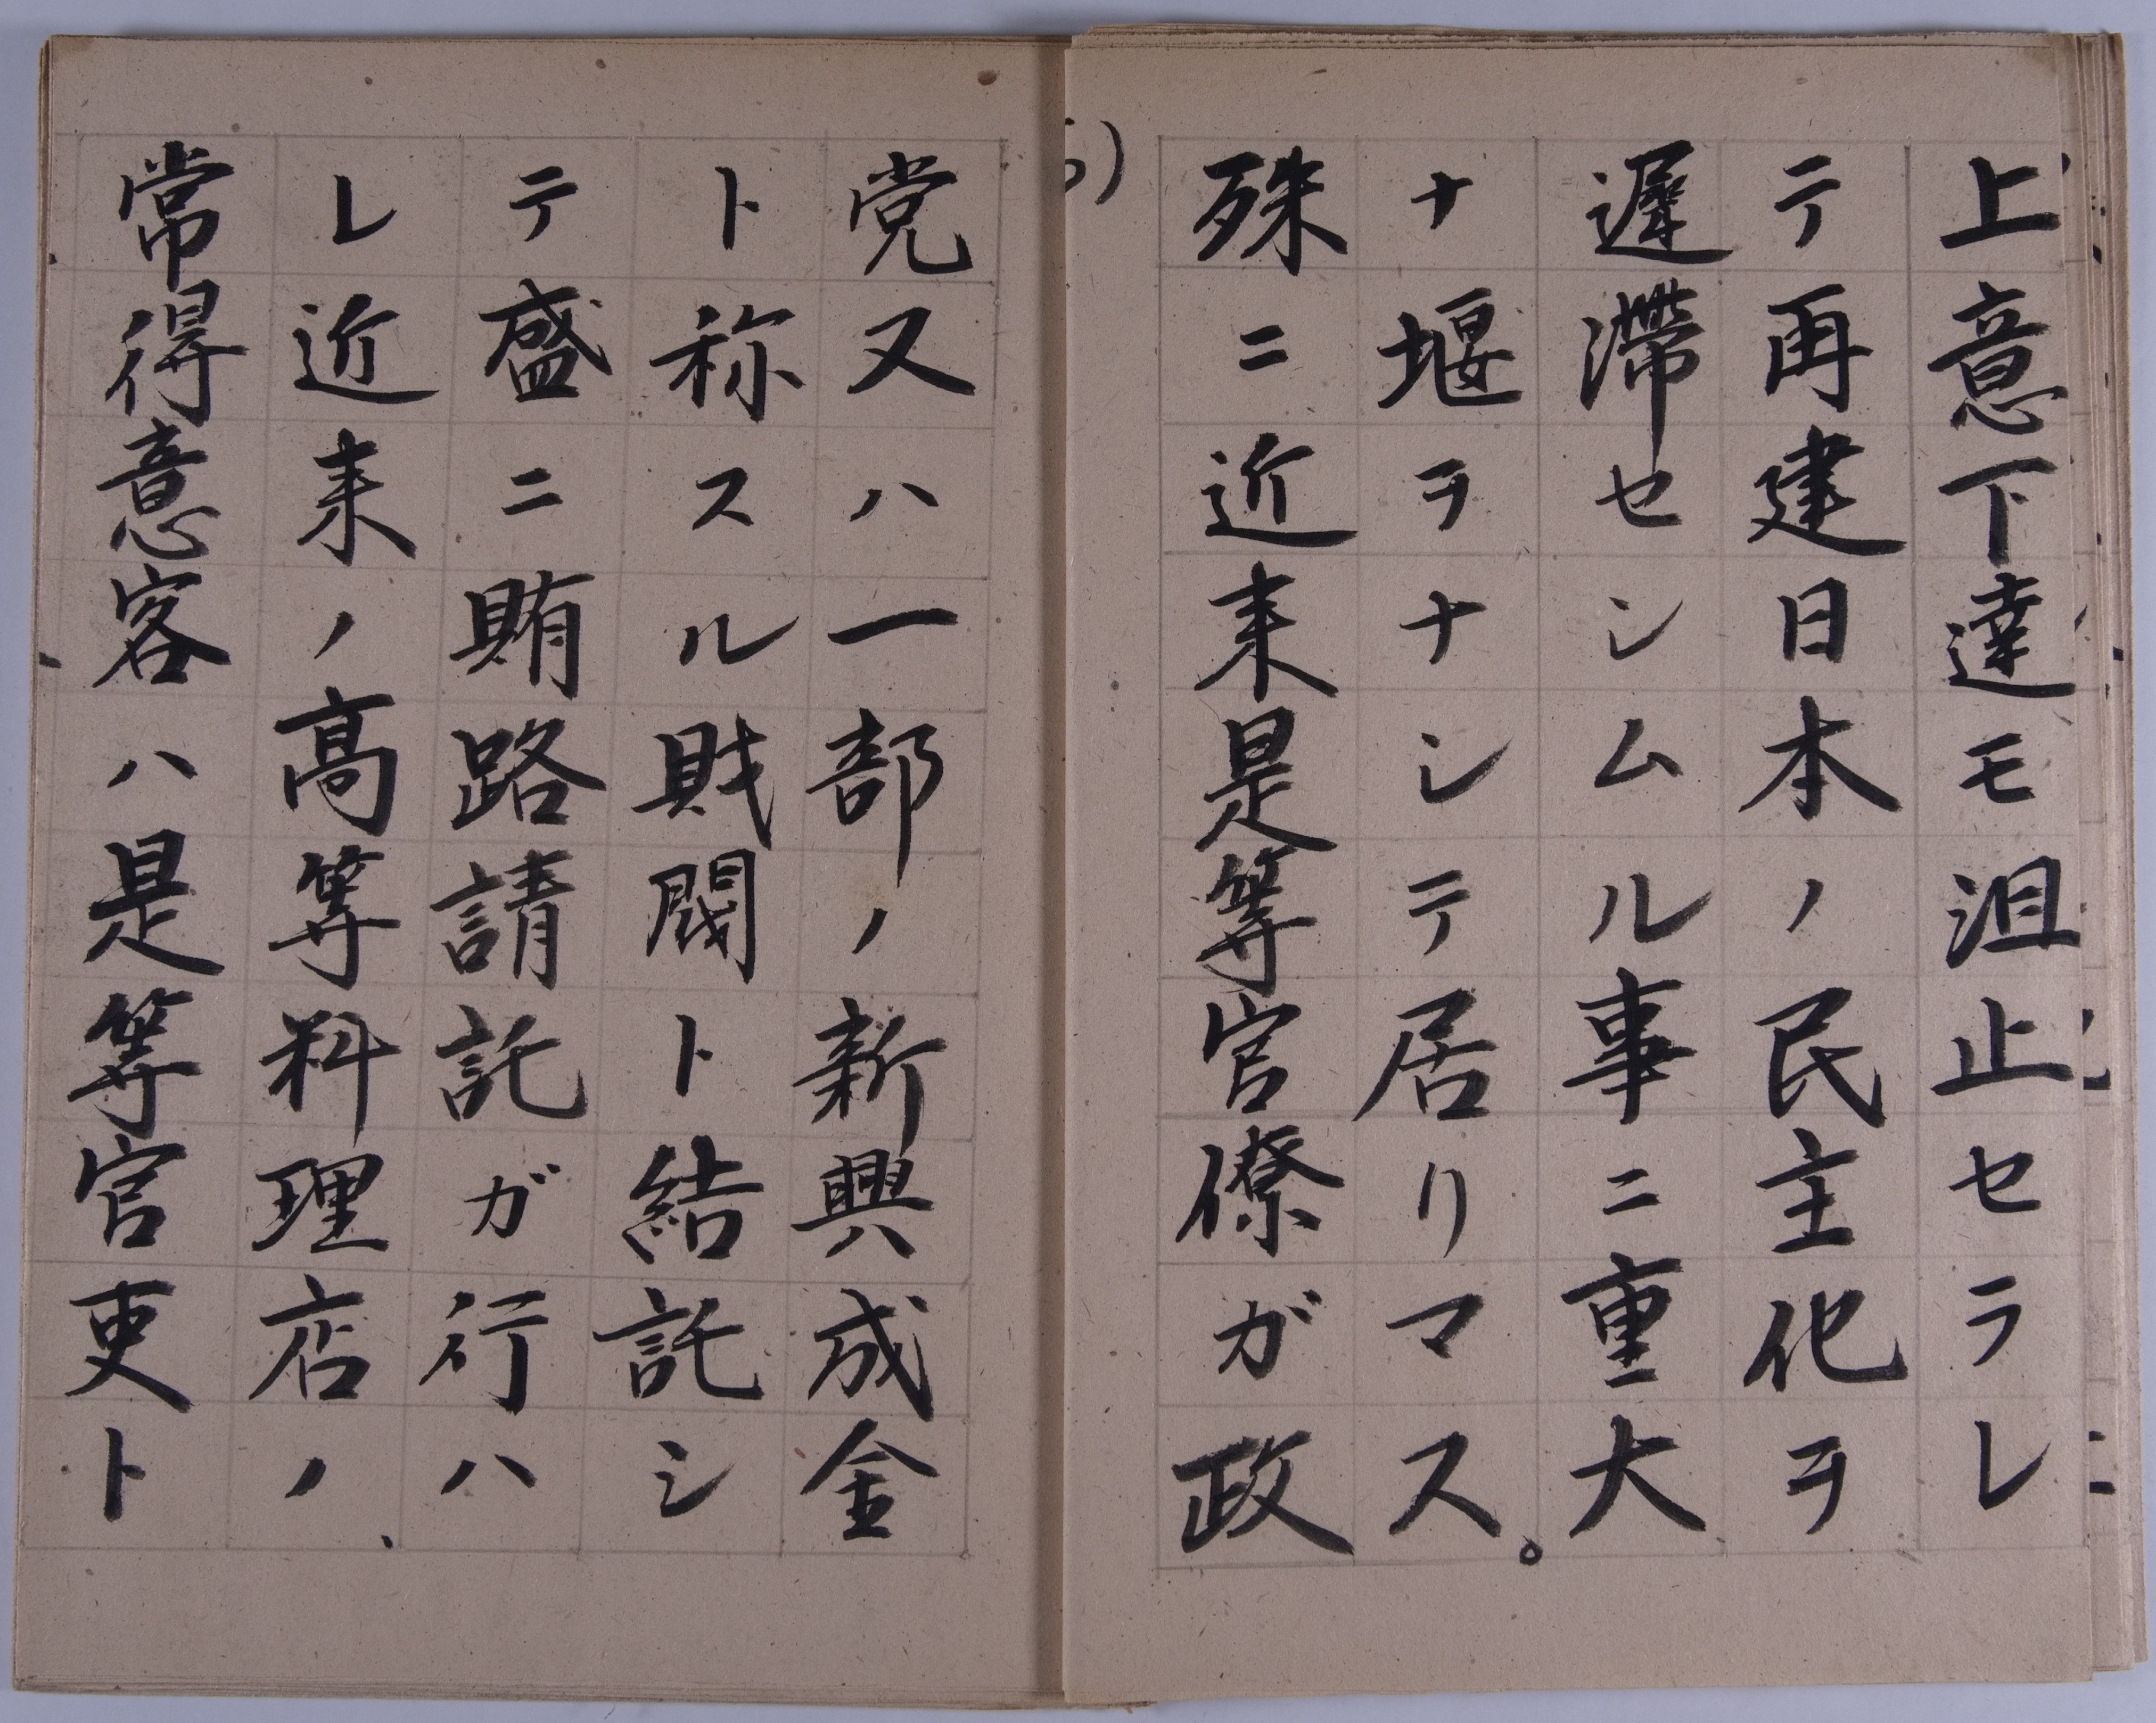 上意下達モ沮止セラレ
テ再建日本ノ民主化ヲ
遅滞センムル事ニ重大
ナ堰ヲナシテ居リマス。
殊ニ近来是等官僚ガ政
党又ハ一部ノ新興成金
ト称スル財閥ト結託シ
テ盛ニ賄路請託ガ行ハ
レ近来ノ高等料理店ノ、
常得意客ハ是等官吏ト